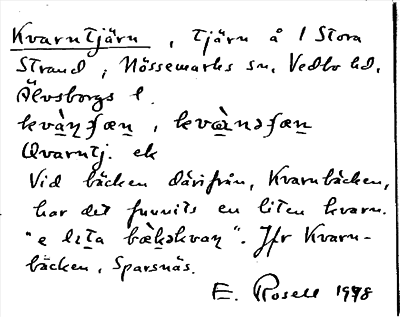 Kvarntjärn, tjärn å 1 Stora
Strand, Nössemarks sn, Vedbo hd,
Älvsborgs l.
Qvarntj. ek
Vid bäcken därifrån, Kvarnbäcken,
har det funnits en liten kvarn.
"e lita bækəkvaɳ". Jfr Kvarn-
bäcken, Sparsnäs.
E. Rosell 1978